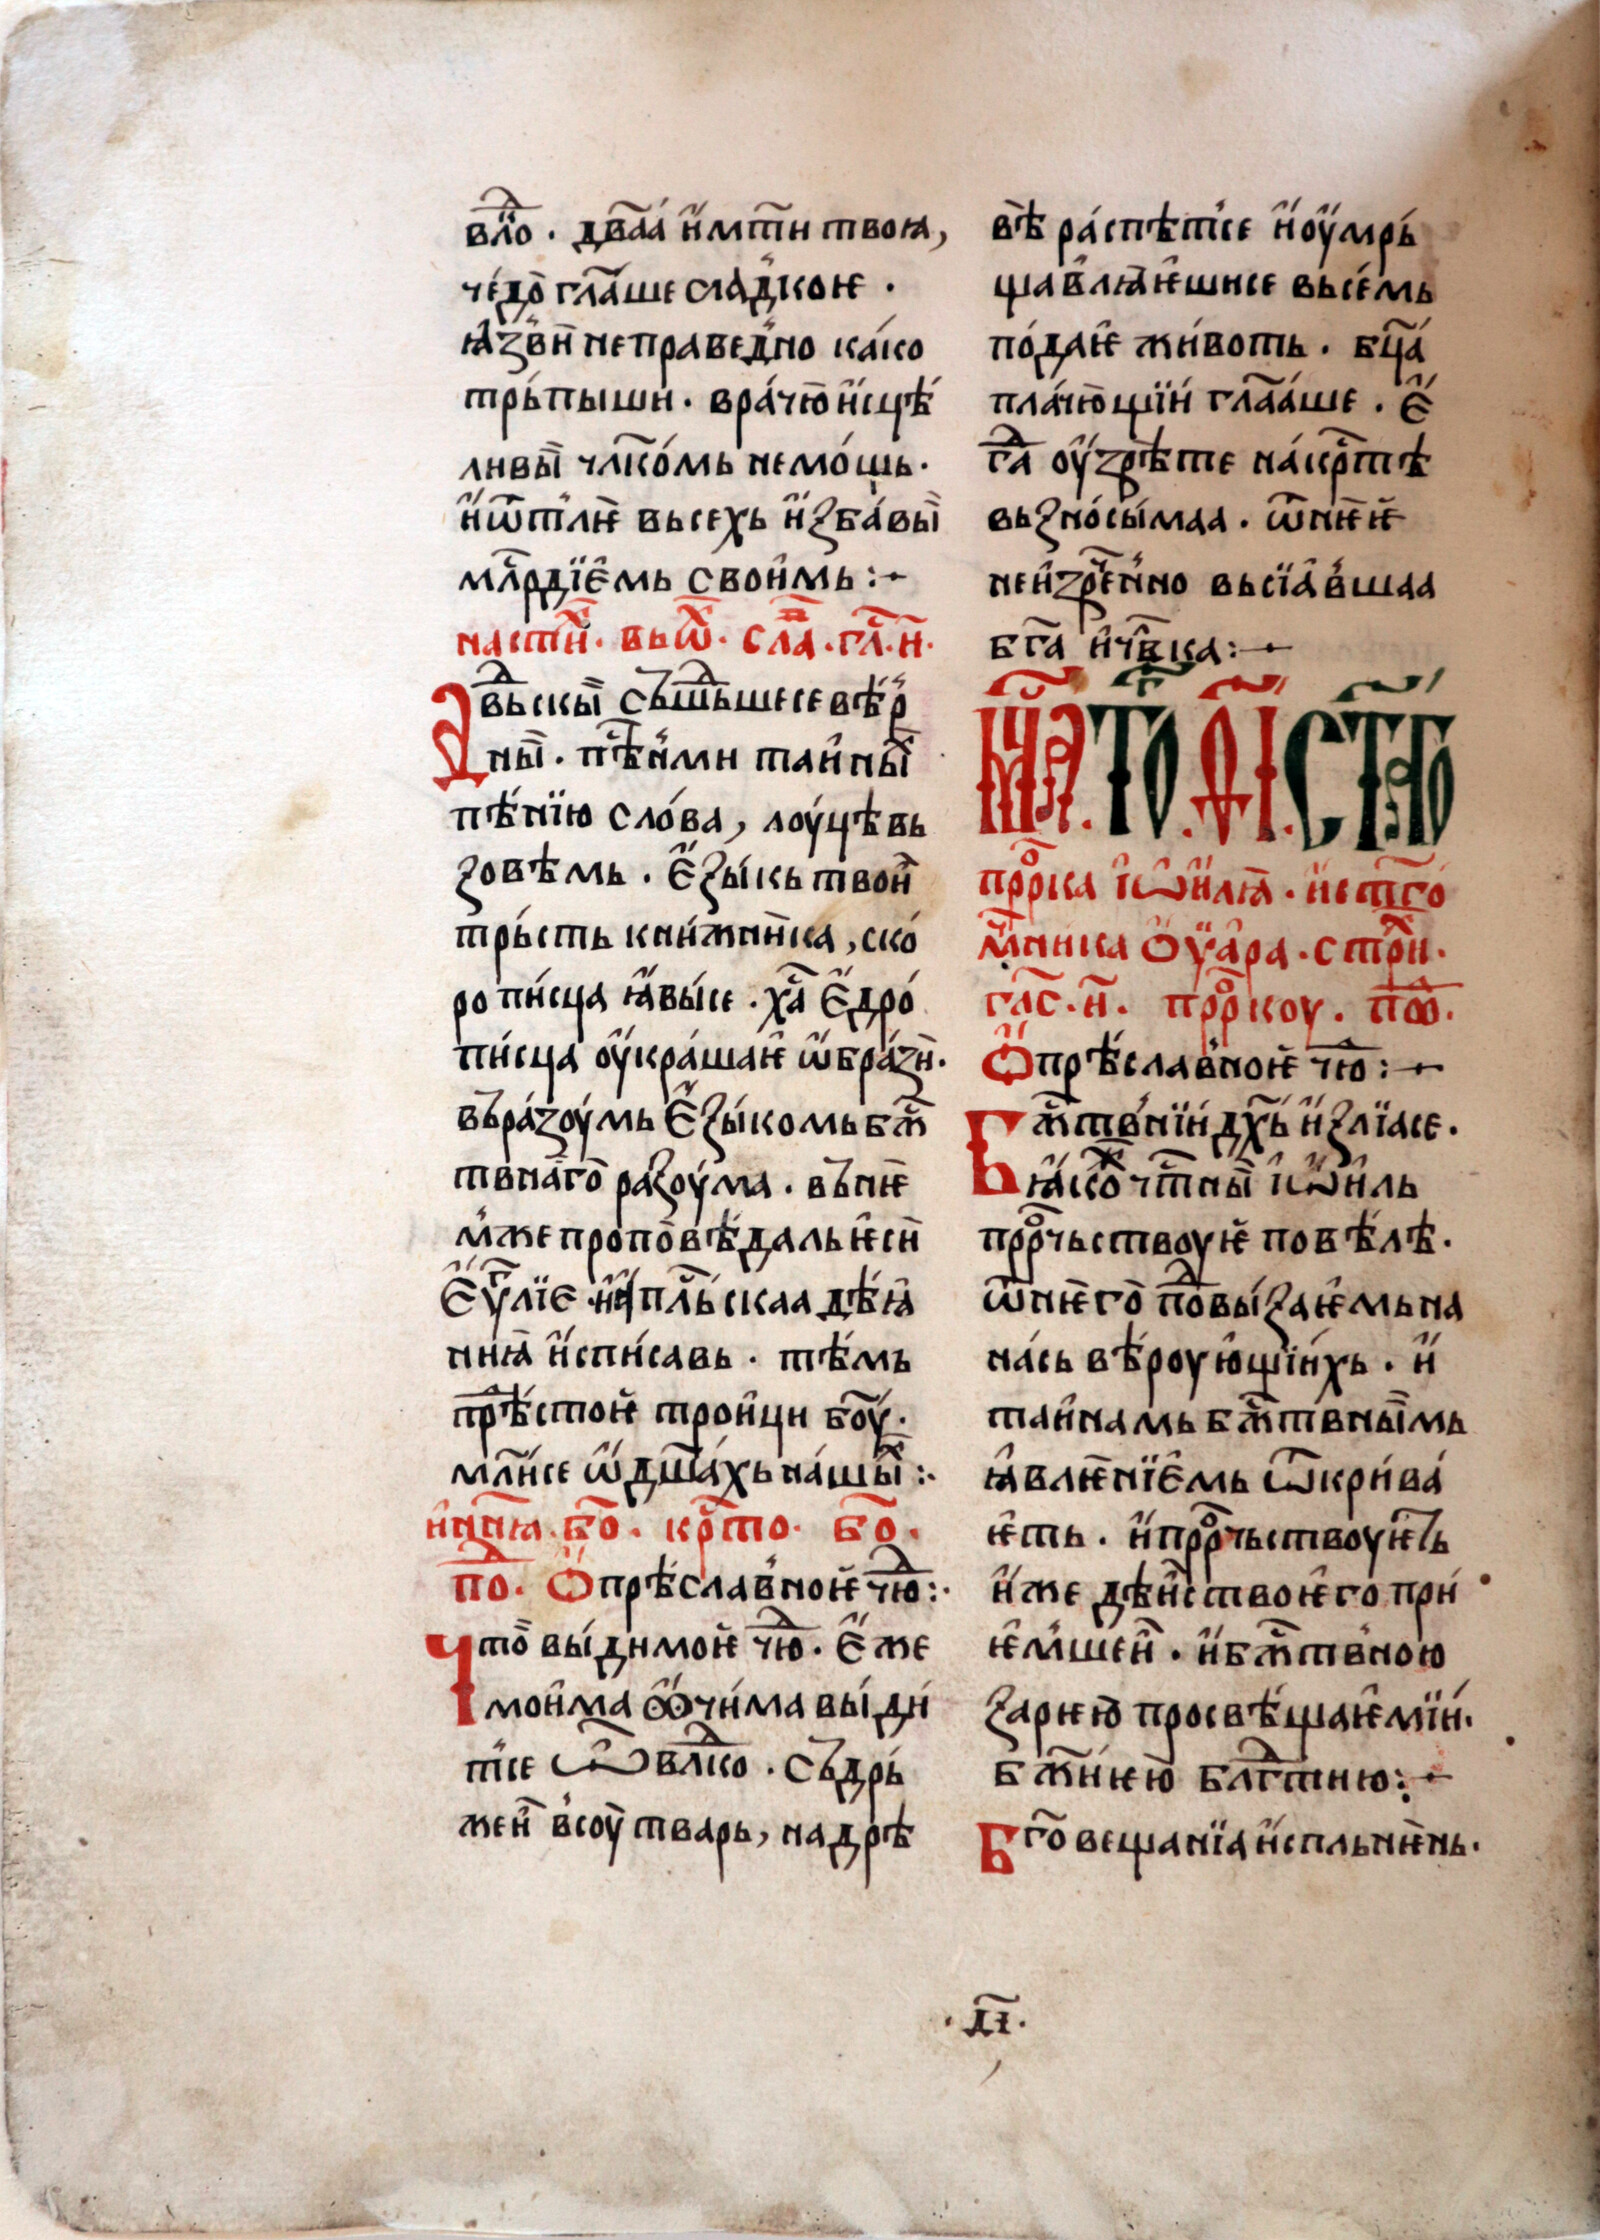 влⷣо · дв҃аа и҆мт҃и твоꙗ,
чедо гл҃аше сладкоѥ ·
ꙗ҆зви неправедно како
трьпыши · врачю и҆сцѣ
ливы чл҃комь немощь ·
и҆ѿ тлѥ вьсехь и҆збавы
мл҃рдїе҆мь свои҆мь :~
на стиⷯ · вьѿⷯ · слаⷡ · гл҃ · и҃ ·
Двⷣьскы съшⷣьшесе вѣр
ны · пѣⷭнми таи҆ныⷯ
пѣнїю слова, лоуцѣ вь
зовѣмь · е҆зыкь твои
трьсть книжника, ско
рописца ꙗ҆высе · хⷭа е҆дро
писца оу҆крашаѥ ѡ҆бразн ·
въразоумь е҆зыкомь бж҃
твнаго разоума · вънѥ
мже проповѣдаль ѥси
е҆уⷢлїе · и҆ апⷭльскаа дѣꙗ҆
ниꙗ и҆списавь · тѣмъ
прⷭѣстоѥ трои҆ци боу҃ ·
млнⷭе ѡ҆дш҃ахь нашыⷯ :·
и҆ нн҃ꙗ · бо҃ · крⷭто · бо҃ ·
поⷣ · Ѻ҆ прѣславноѥ чюⷣ :·
Что выдимоѥ чюⷣ · е҆же
мои҆ма ѻ҆чима выдн
тсе ѽ влⷣко · съдрь
жеи всоу тварь, на дрѣ
вѣ распѣтсе и҆ оу҆мрь
щавлꙗѥшисе вьсемь
подаѥ животь · бц҃а
плачющїи гла҃аше · е҆
гⷣа оу҆зрѣте на крⷭтѣ
вьзносымаа · ѿ нѥѥ
неи҆зрⷣенно вьсїа҆вшаа
бг҃а и҆ чв҃ка :~
мцⷭа · то · ді · ст҃го
прⷪрка і҆ѡ҆илꙗ · и҆ ст҃го
мⷱнника ѻ҆уа҆ра · стрⷯи ·
глс҃ · и҃ · прⷪркоу · поⷣ ·
Ѻ҆ прѣславноѥ чюⷣ :~
Бжⷭтвнїи дх҃ь и҆злїасе ·
ꙗ҆коⷤ чтⷭны і҆ѡ҆иль
прⷪрчьствоуѥ повѣлѣ ·
ѿ нѥго поⷣвызаѥмь на
нась вѣроующїихь · и҆
таи҆намь бжⷭтвнымь
ꙗ҆влѥнїе҆мь ѿкрива
ѥть · и҆ прⷪрчьствоуѥть
и҆же дѣи҆ство ѥго при
ѥмшеи · и҆ бжⷭтвною
зарѥю просвѣщаѥмїи ·
бж҃иѥю блгⷣтию :~
Бг҃овещанїа и҆спльнѥнь ·
· ді҃ ·